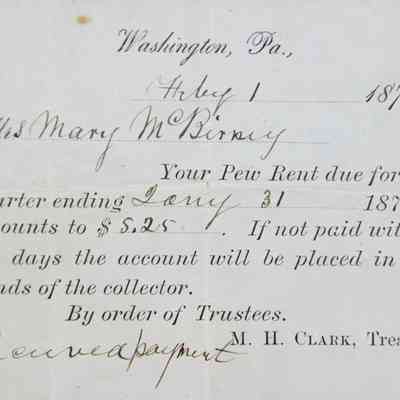 Washington, Pa.,
Feby 1 187
Mary McBirney
Your Pew Rent due for
arter ending Jany 31 187
ounts to $ 5.25 . If not paid wit
days the account will be placed in
nds of the collector.
By order of Trustees.
M. H. CLARK, Trea
Received payment